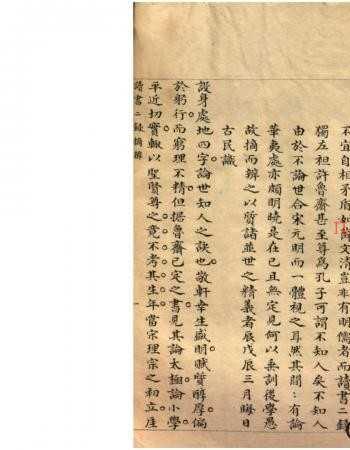 不宜自相矛盾如薛文清豈非有明儒者而讀書二錄
獨左袒許魯齋甚至尊為孔子可謂不知人矣不知人
由於不論世合宋元明而一體視之耳然其間有論
華夷處亦頗明曉是在已且無定見何以垂訓後學愚
故摘而辨之以質諸並世之精義者辰戊辰三月晦日
古民識
設身處地四字論世知人之訣也敬軒幸生盛明賦質醇厚偏
於躬行而窮理不精但据魯齋已定之書見其論太極論小學
平近切實輒以聖賢尊之竟不考其生年當宋理宗之初立崖
讀書二錄摘辨